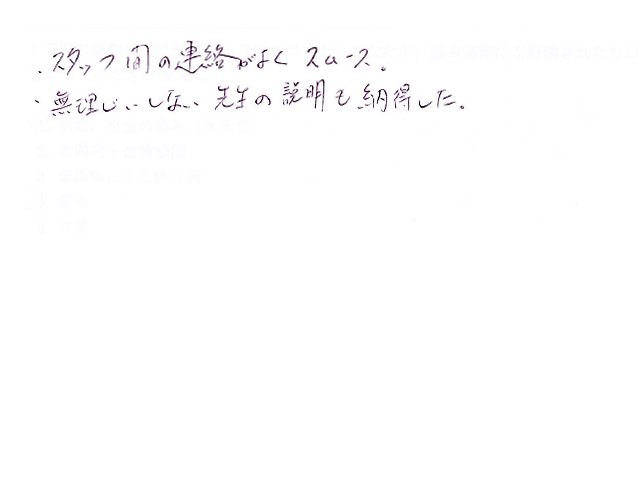 ・スタッフ間の連絡がよく スムース。
・無理じいしない 先生の説明も納得した。